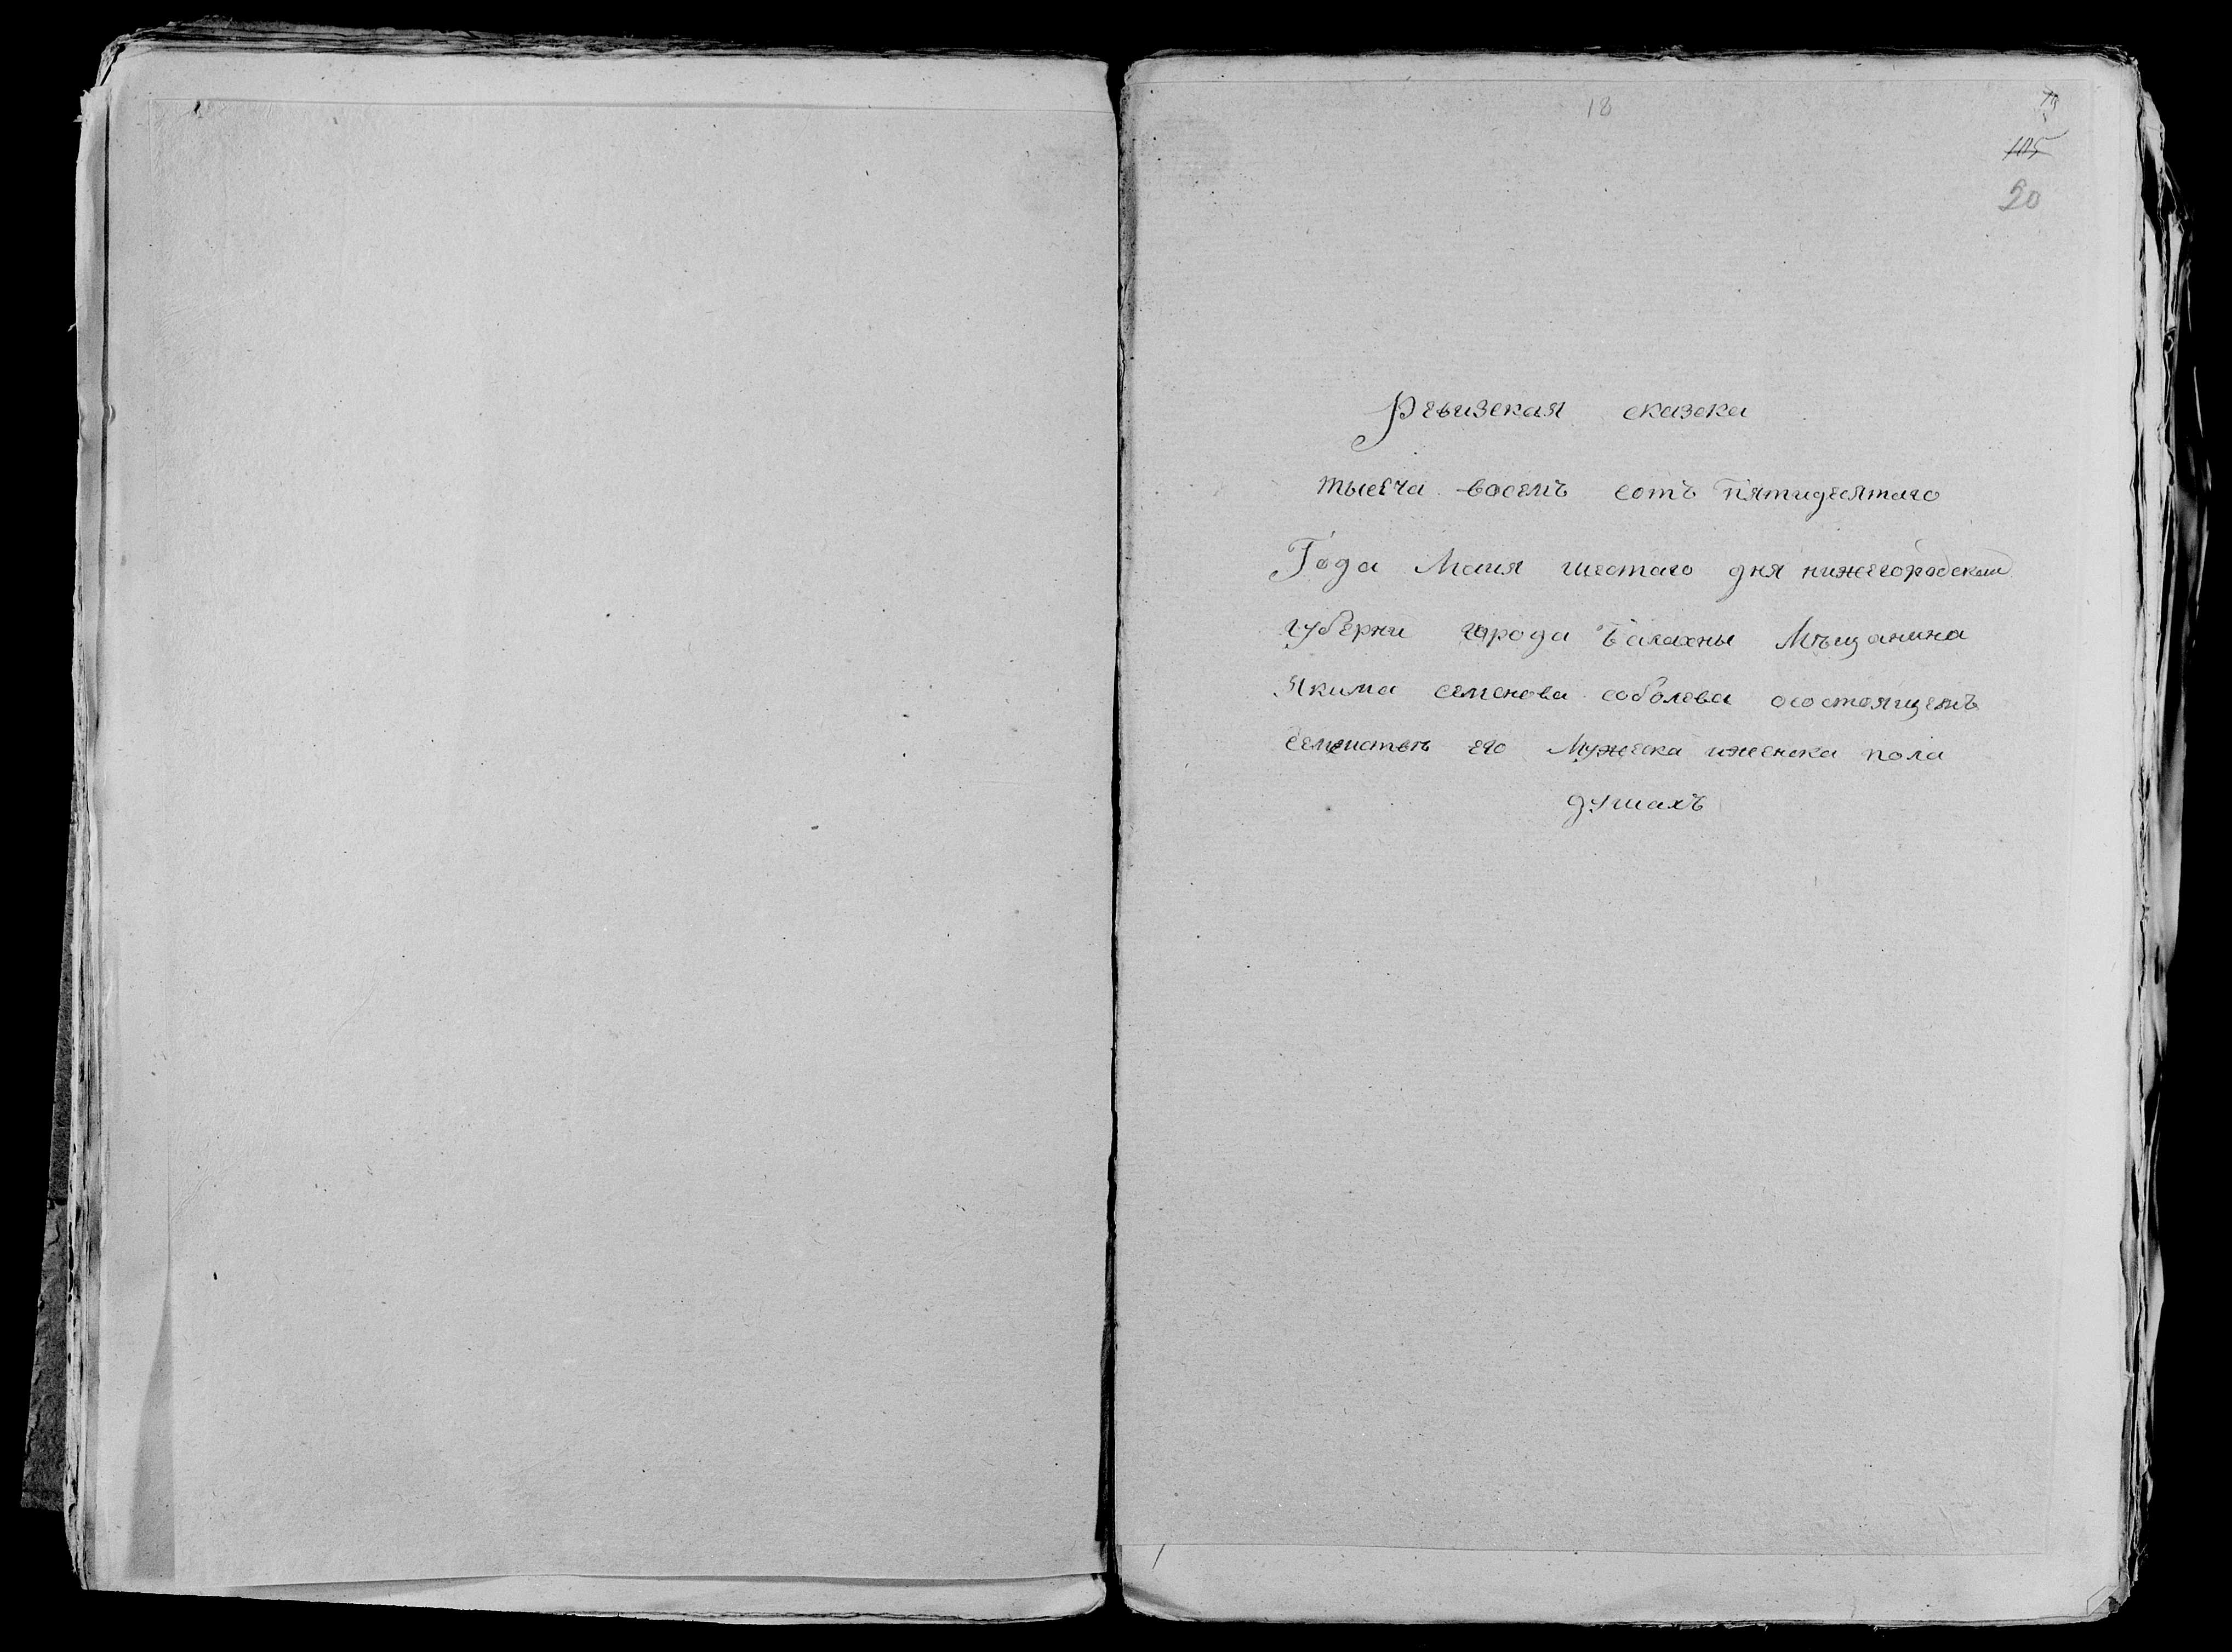 18
79
105
20
Ревизская сказска
тысеча восемъ сотъ пятидесятаго
Года Маия шестаго дня нижегородской
губерни города Балахны Мѣщанина
Якима семенова соболева осостоящемъ
семействѣ его Мужеска иженска пола
душахъ